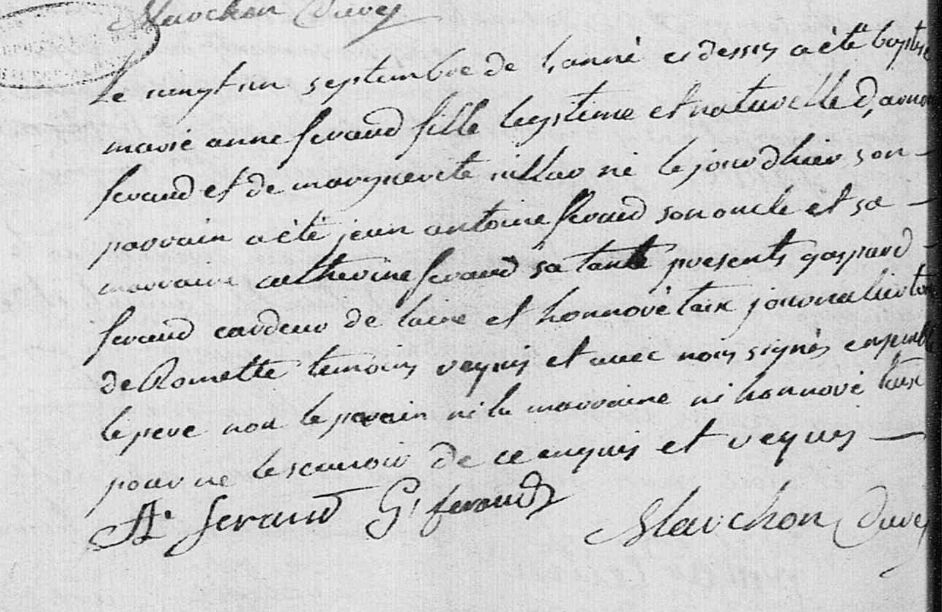 Marchon Curé
Le vingt un septembre de l'anné ci dessus a été baptisé
marie anne feraud fille legitime et naturelle d'arnou
feraud et de marguerite né le jourdhier son
parrain a été jean antoine feraud son oncle et sa
marraine catherine feraud sa tante presents gaspard
feraud cardeur de laine et honnoré taix journalier
de Romette temoins requis et avec nous signés ensemble
le pere non le parain ni la marraine ni honnoré taix
pour ne le scauoir de ce enquis et requis
Ae feraud G feraud Marchon Curé